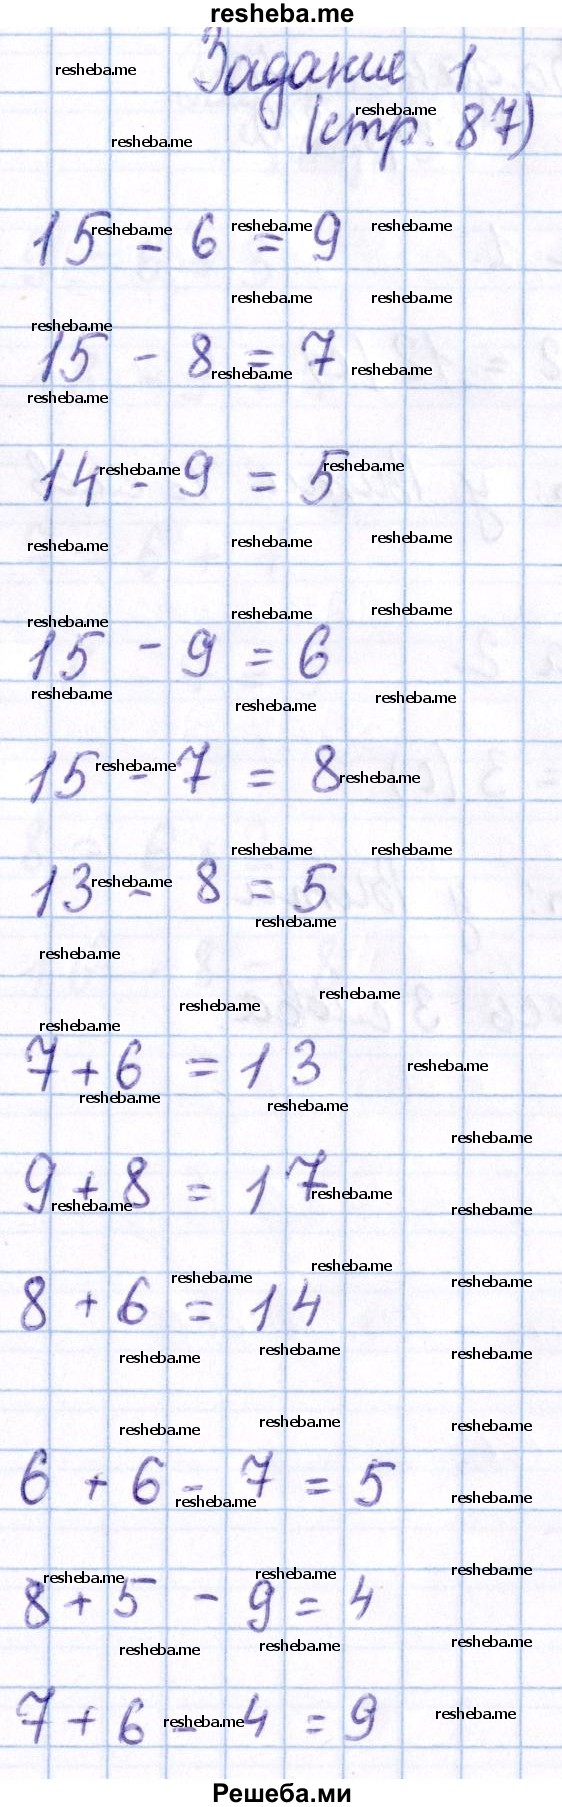 resheba.me
Задание 1
(стр. 87)
15 - 6 = 9
15 - 8 = 7
14 - 9 = 5
15 - 9 = 6
15 - 7 = 8
13 - 8 = 5
7 + 6 = 13
9 + 8 = 17
8 + 6 = 14
6 + 6 - 7 = 5
8 + 5 - 9 = 4
7 + 6 - 4 = 9
Решеба.ми